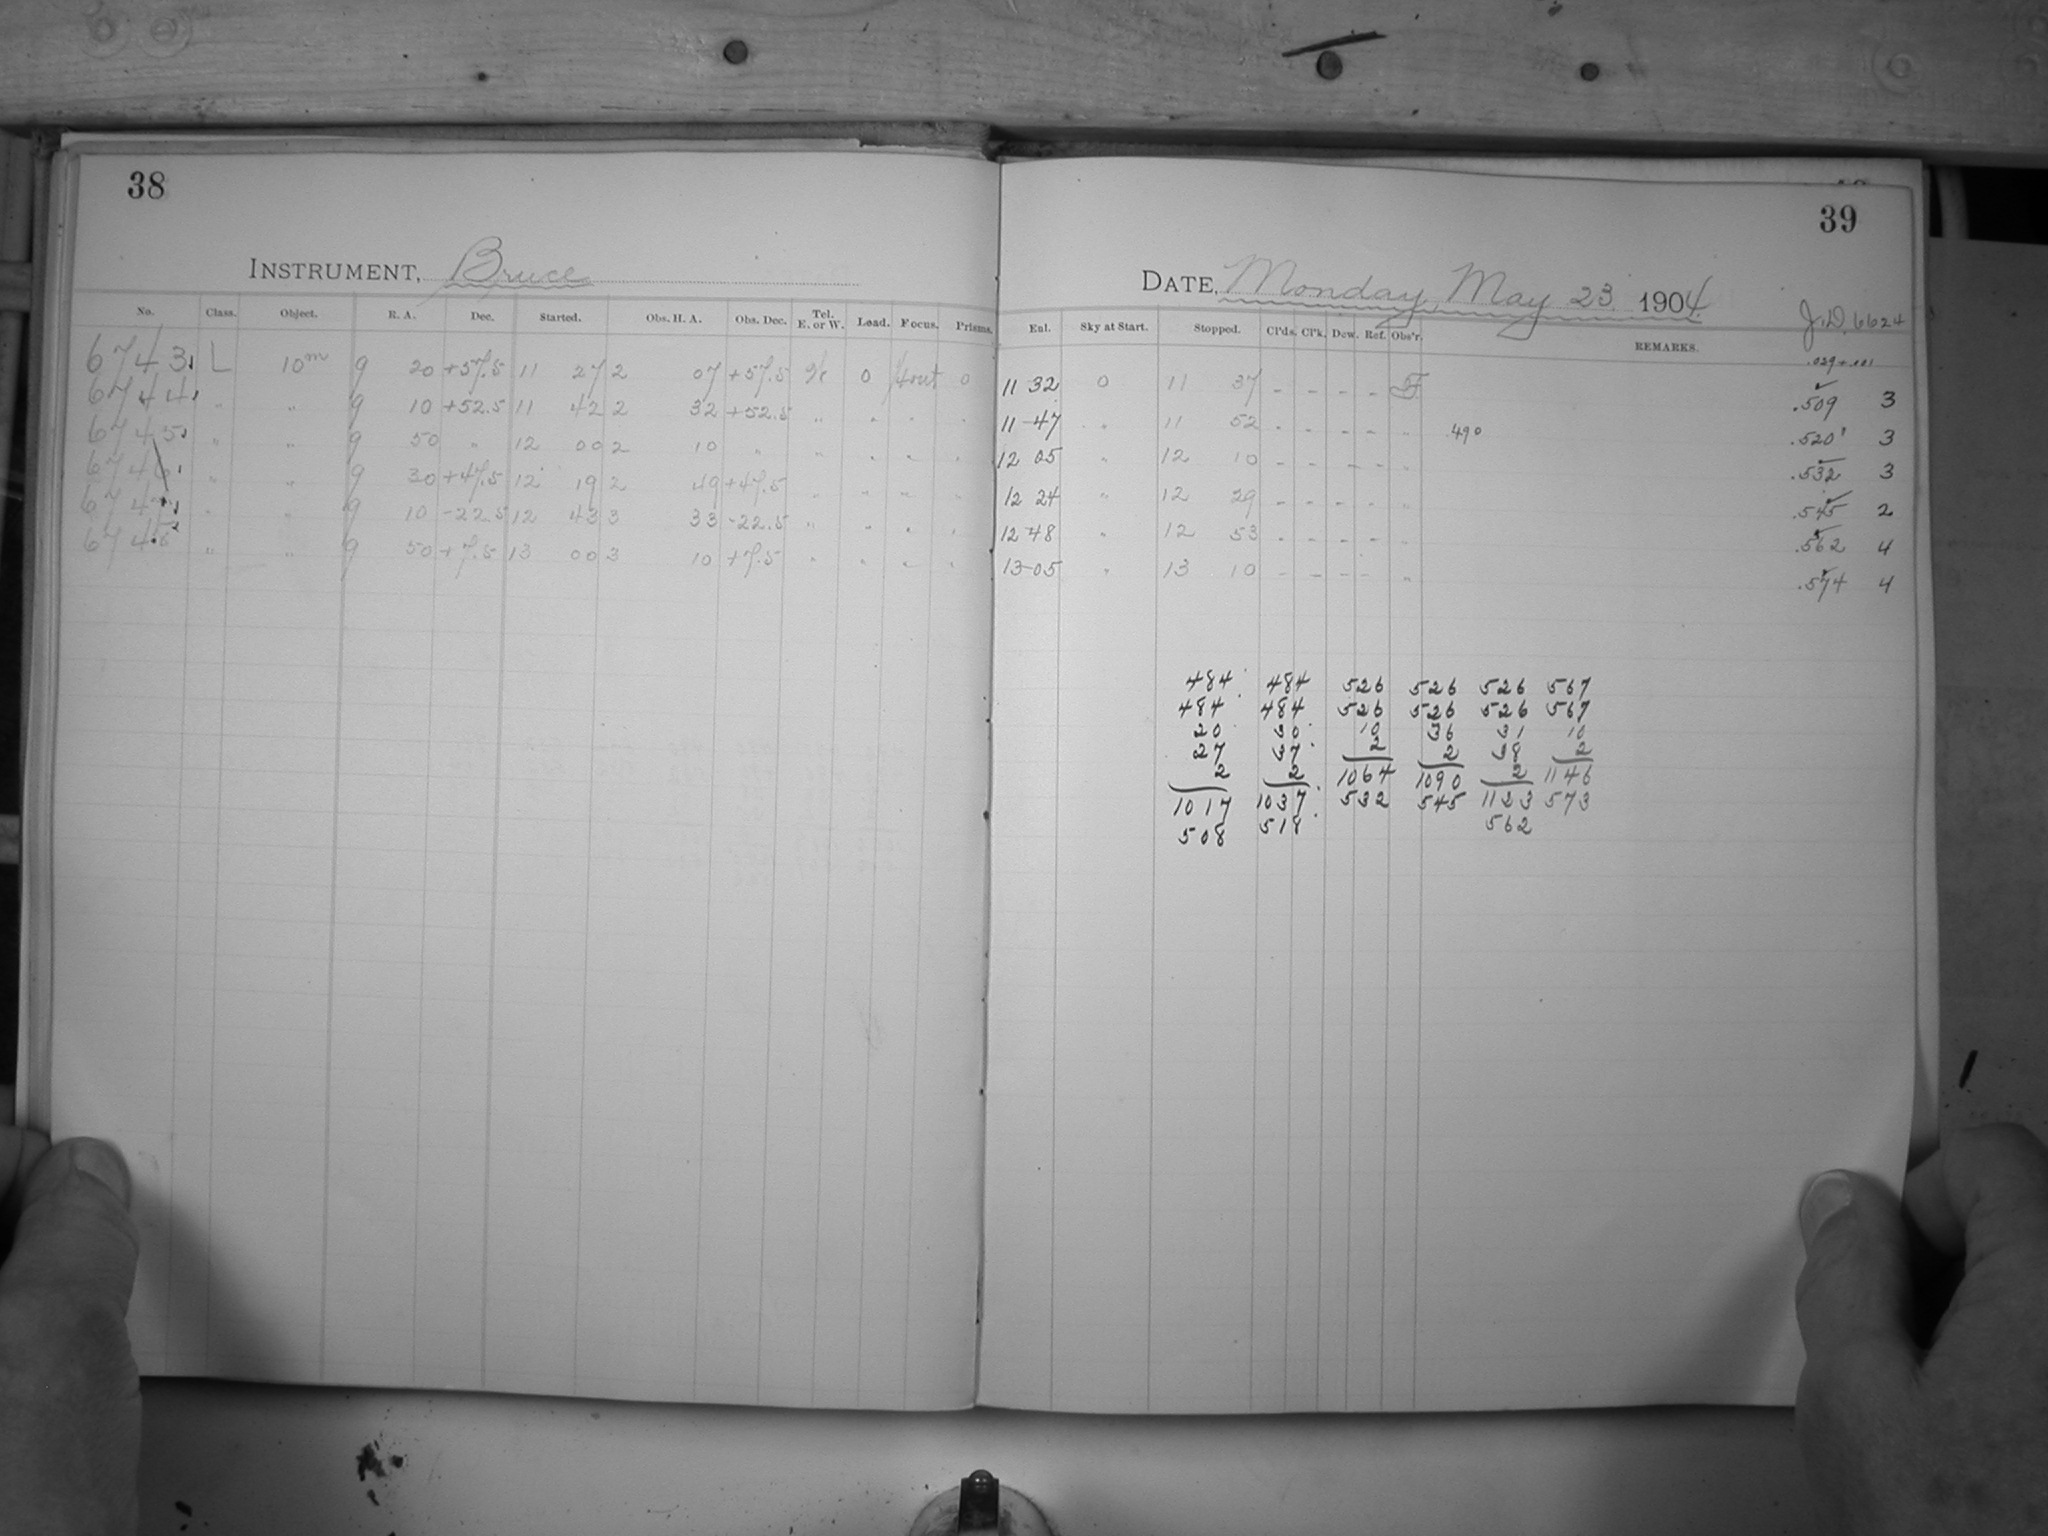 38
INSTRUMENT, Bruce
No. Class. Object. R. A. Dec. Started. Obs. H. A. Obs. Dec. Tel. E. or W. Load. Focus. Prisms.
6743 L 10m 9 20 +57.5 11 27 2 07 +57.5 0 4out 0
6744 " " 9 10 +52.5 11 42 2 32 +52.5 " " " "
6745 " " 9 50 " 12 00 2 10 " " " " "
6746 " " 9 30 +47.5 12 19 2 49 +47.5 " " " "
6747 " " 9 10 -22.5 12 43 3 33 -22.5 " " " "
6748 " " 9 50 +7.5 13 00 3 10 +7.5 " " " "
39
DATE, Monday, May 23 1904
J.D. 6624
Eul. Sky at Start. Stopped. Cl'ds. Cl'k. Dew. Ref. Obs'r. REMARKS.
.029+.001
11 32 0 11 37 - - - - F .509 3
11-47 " 11 52 - - - - " .490 .520 3
12 05 " 12 10 - - - - " .532 3
12 24 " 12 29 - - - - " .545 2
12 48 " 12 53 - - - - " .562 4
13-05 " 13 10 - - - - " .574 4
484 484 526 526 526 567
484 484 526 526 526 567
20 30 10 36 31 10
27 37 2 2 38 2
2 2 1064 1090 2 1146
1017 1037 532 545 1123 573
508 518 562